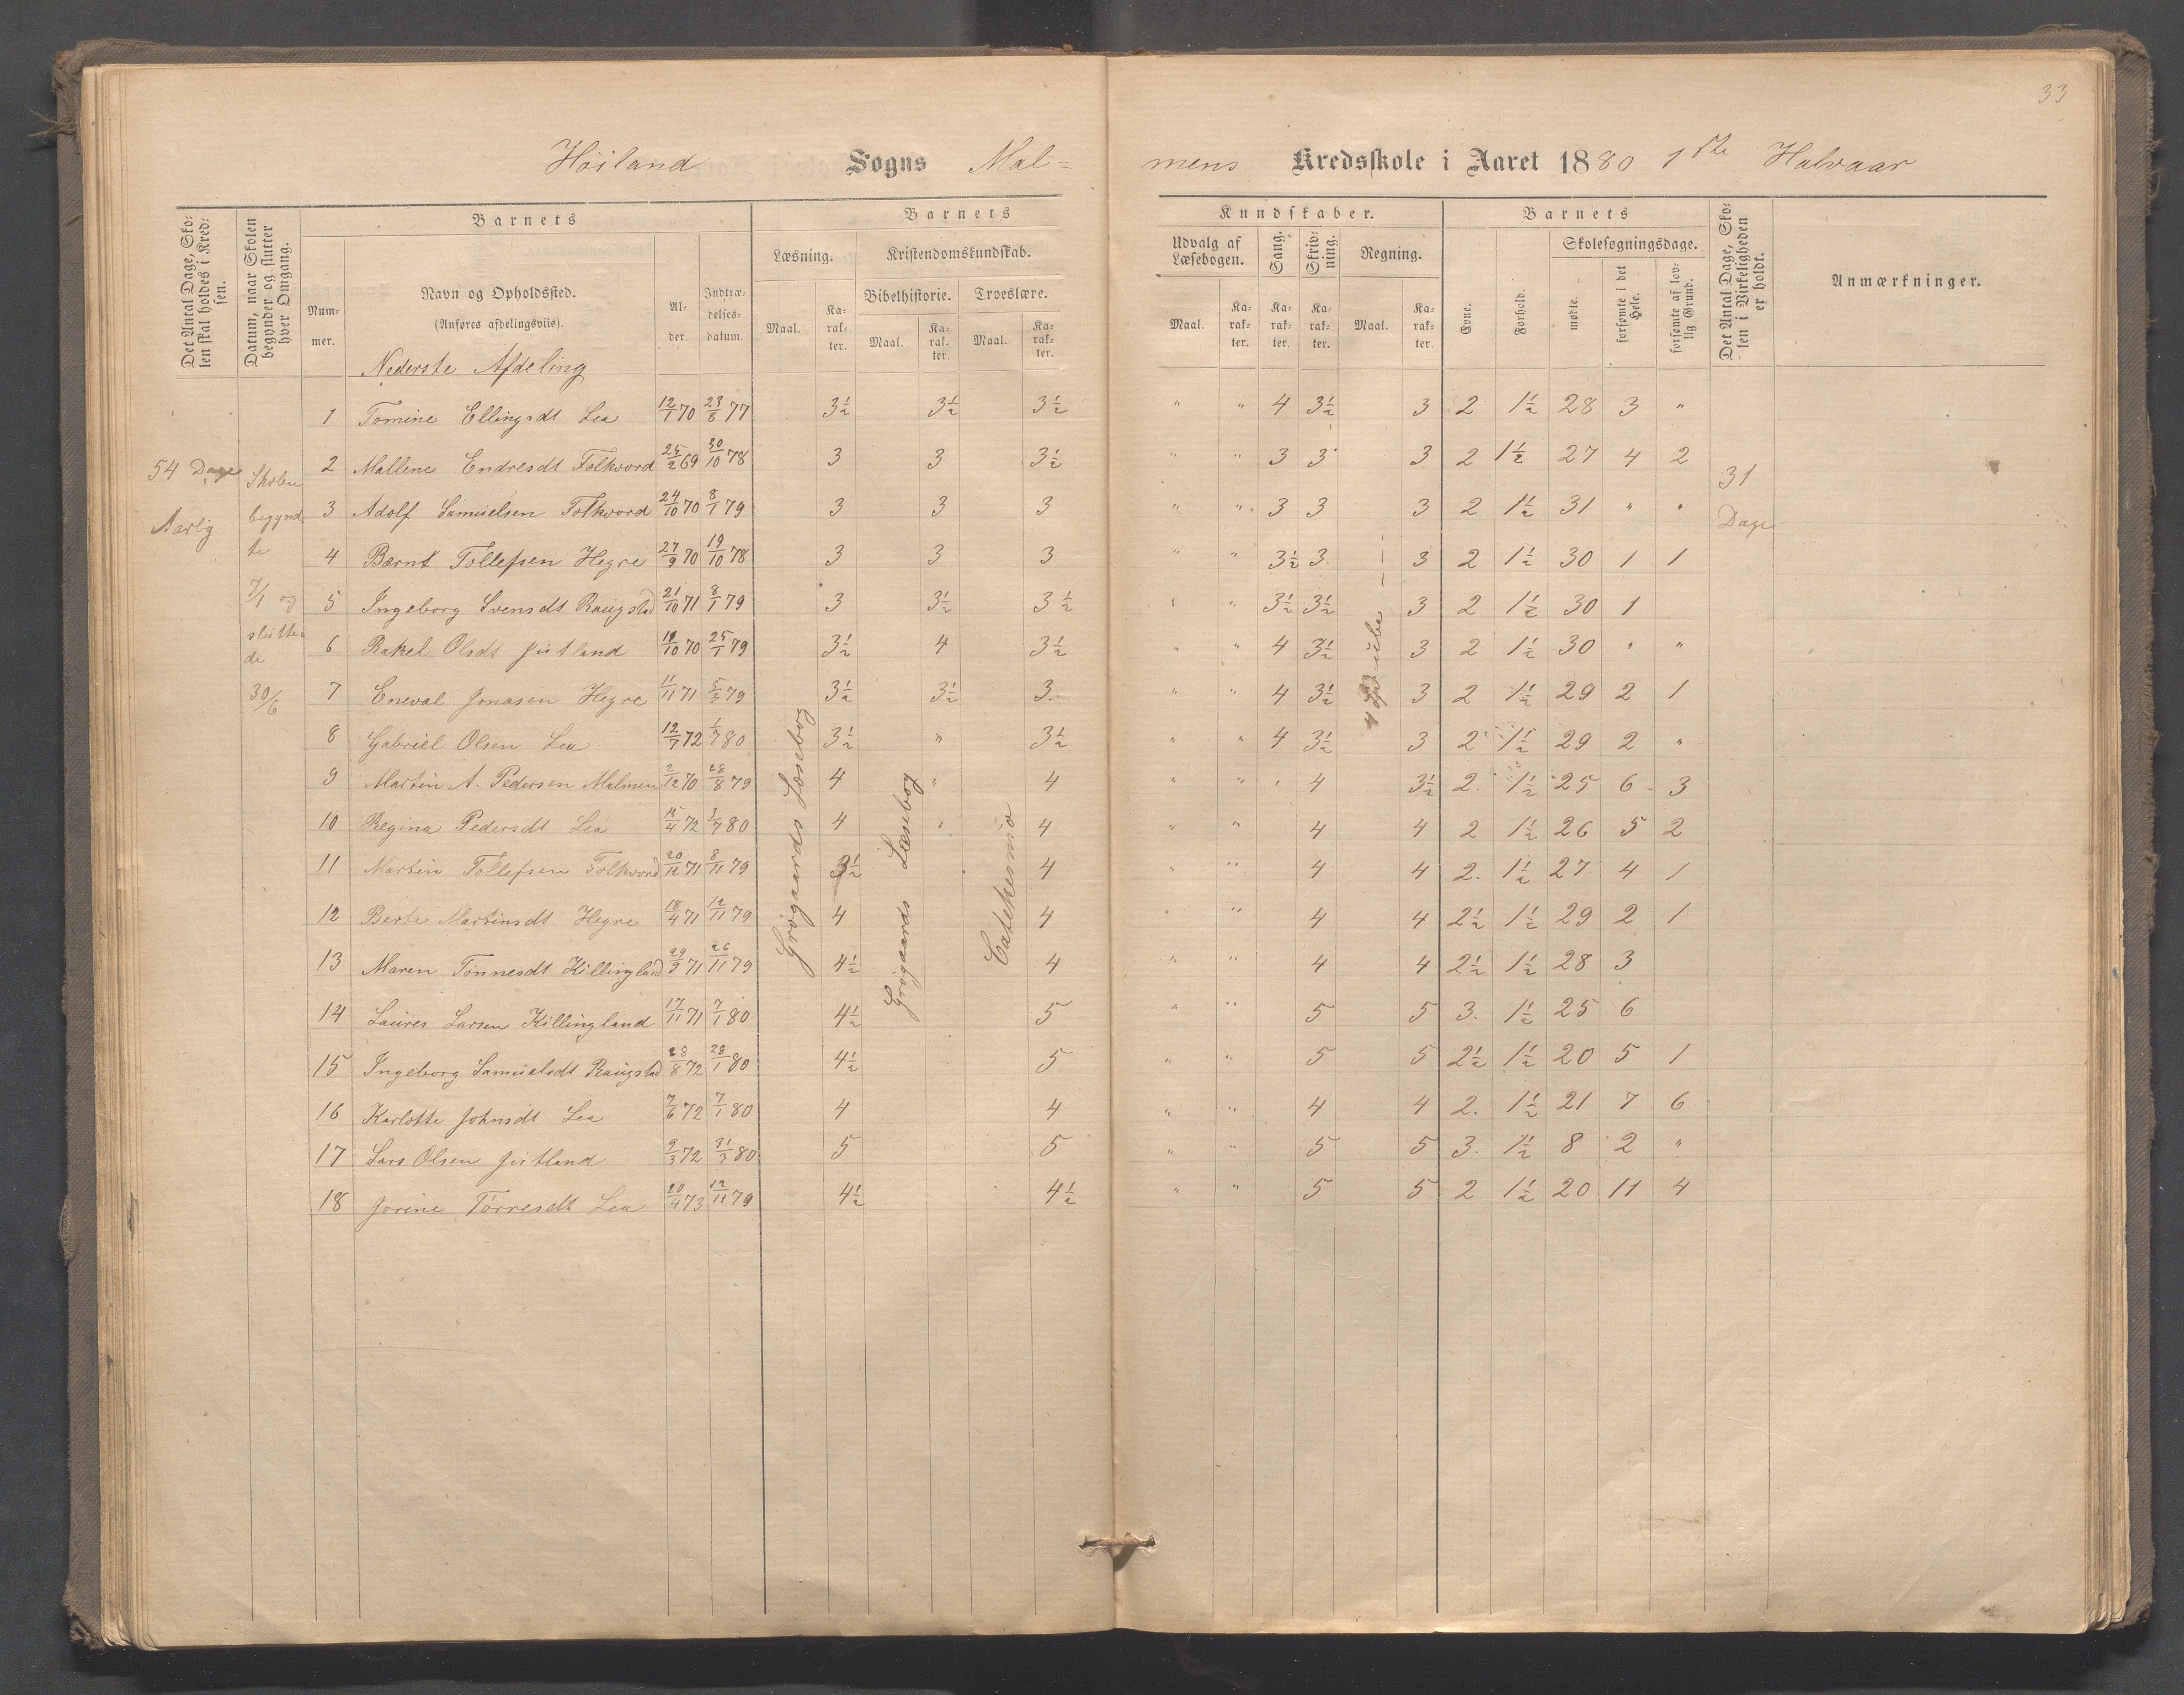 33
Höiland Sogns Mal= mens Kredsskole i Aaret 1880 1ste Halvaar
Det Antal Dage, Skolen skal holdes i Kredsen.
Datum, naar Skolen begynder og slutter hver Omgang.
Barnets
Nummer.
Navn og Opholdssted.
(Anføres afdelingsviis).
Alder.
Indtrædelsesdatum.
Barnets
Læsning.
Maal.
Karakter.
Kristendomskundskab.
Bibelhistorie.
Maal.
Karakter.
Troeslære.
Maal.
Karakter.
Kundskaber.
Udvalg af Læsebogen.
Maal.
Karakter.
Sang.
Karakter.
Skrivning.
Karakter.
Regning.
Maal.
Karakter.
Barnets
Evne.
Forhold.
Skolesøgningsdage.
mødte.
forsømte i det Hele.
forsømte af lovlig Grund.
Det Antal Dage, Skolen i Virkeligheden er holdt.
Anmærkninger.
Nederste Afdeling
54 Dage
Aarlig
Skolen
begynd
te
7/1 og
slutte
de
30/6
1 Tomine Ellingsdt Lea 12/1 70 23/8 77 3½ 3½ 3½ " " 4 3½ 3 2 1½ 28 3 "
2 Mallene Endresdt Folkvord 25/2 69 30/10 78 3 3 3½ " " 3 3 3 2 1½ 27 4 2
3 Adolf Samuelsen Folkvord 24/10 70 8/1 79 3 3 3 " " 3 3 3 2 1½ 31 " "
4 Bernt Tollefsen Hegre 27/9 70 19/10 78 3 3 3 " " 3½ 3 3 2 1½ 30 1 1
5 Ingeborg Svensdt Raugstad 21/10 71 8/1 79 3 3½ 3½ " " 3½ 3½ 3 2 1½ 30 1
6 Rakel Olsdt Jistland 10/10 70 25/1 79 3½ 4 3½ " " 4 3½ 3 2 1½ 30 " "
7 Eneval Jonasen Hegre 11/11 71 5/3 79 3½ 3½ 3 " " 4 3½ 3 2 1½ 29 2 1
8 Gabriel Olsen Lea 12/7 72 1/7 80 3½ " 3½ " " 4 3½ 3 2 1½ 29 2 "
9 Martin A. Pedersen Malmen 2/12 70 28/8 79 4 " 4 " " " 4 3½ 2 1½ 25 6 3
10 Regina Pedersdt Lea 15/4 72 3/7 80 4 " 4 " " 4 4 2 1½ 26 5 2
11 Martin Tollefsen Folkvord 20/12 71 8/11 79 3½ 4 " " 4 4 2 1½ 27 4 1
12 Berte Martinsdt Hegre 18/4 71 12/11 79 4 4 " " 4 4 2½ 1½ 29 2 1
13 Maren Tonnesdt Killingland 29/9 71 26/11 79 4½ 4 " " 4 4 2½ 1½ 28 3
14 Laures Larsen Killingland 17/11 71 7/1 80 4½ 5 " " 5 5 3 1½ 25 6
15 Ingeborg Samuelsdt Raugstad 28/8 72 28/1 80 4½ 5 " " 5 5 2½ 1½ 20 5 1
16 Karlotte Johnsdt Lea 7/6 72 7/1 80 4 4 " " 4 4 2 1½ 21 7 6
17 Lars Olsen Jistland 9/3 72 31/3 80 5 5 " " 5 5 3 1½ 8 2 "
18 Jorine Törresdt Lea 20/4 73 12/11 79 4½ 4½ " " 5 5 2 1½ 20 11 4
Grögaards Læsebog
Grögaards Læsebog
Catekesmo
31
Dage